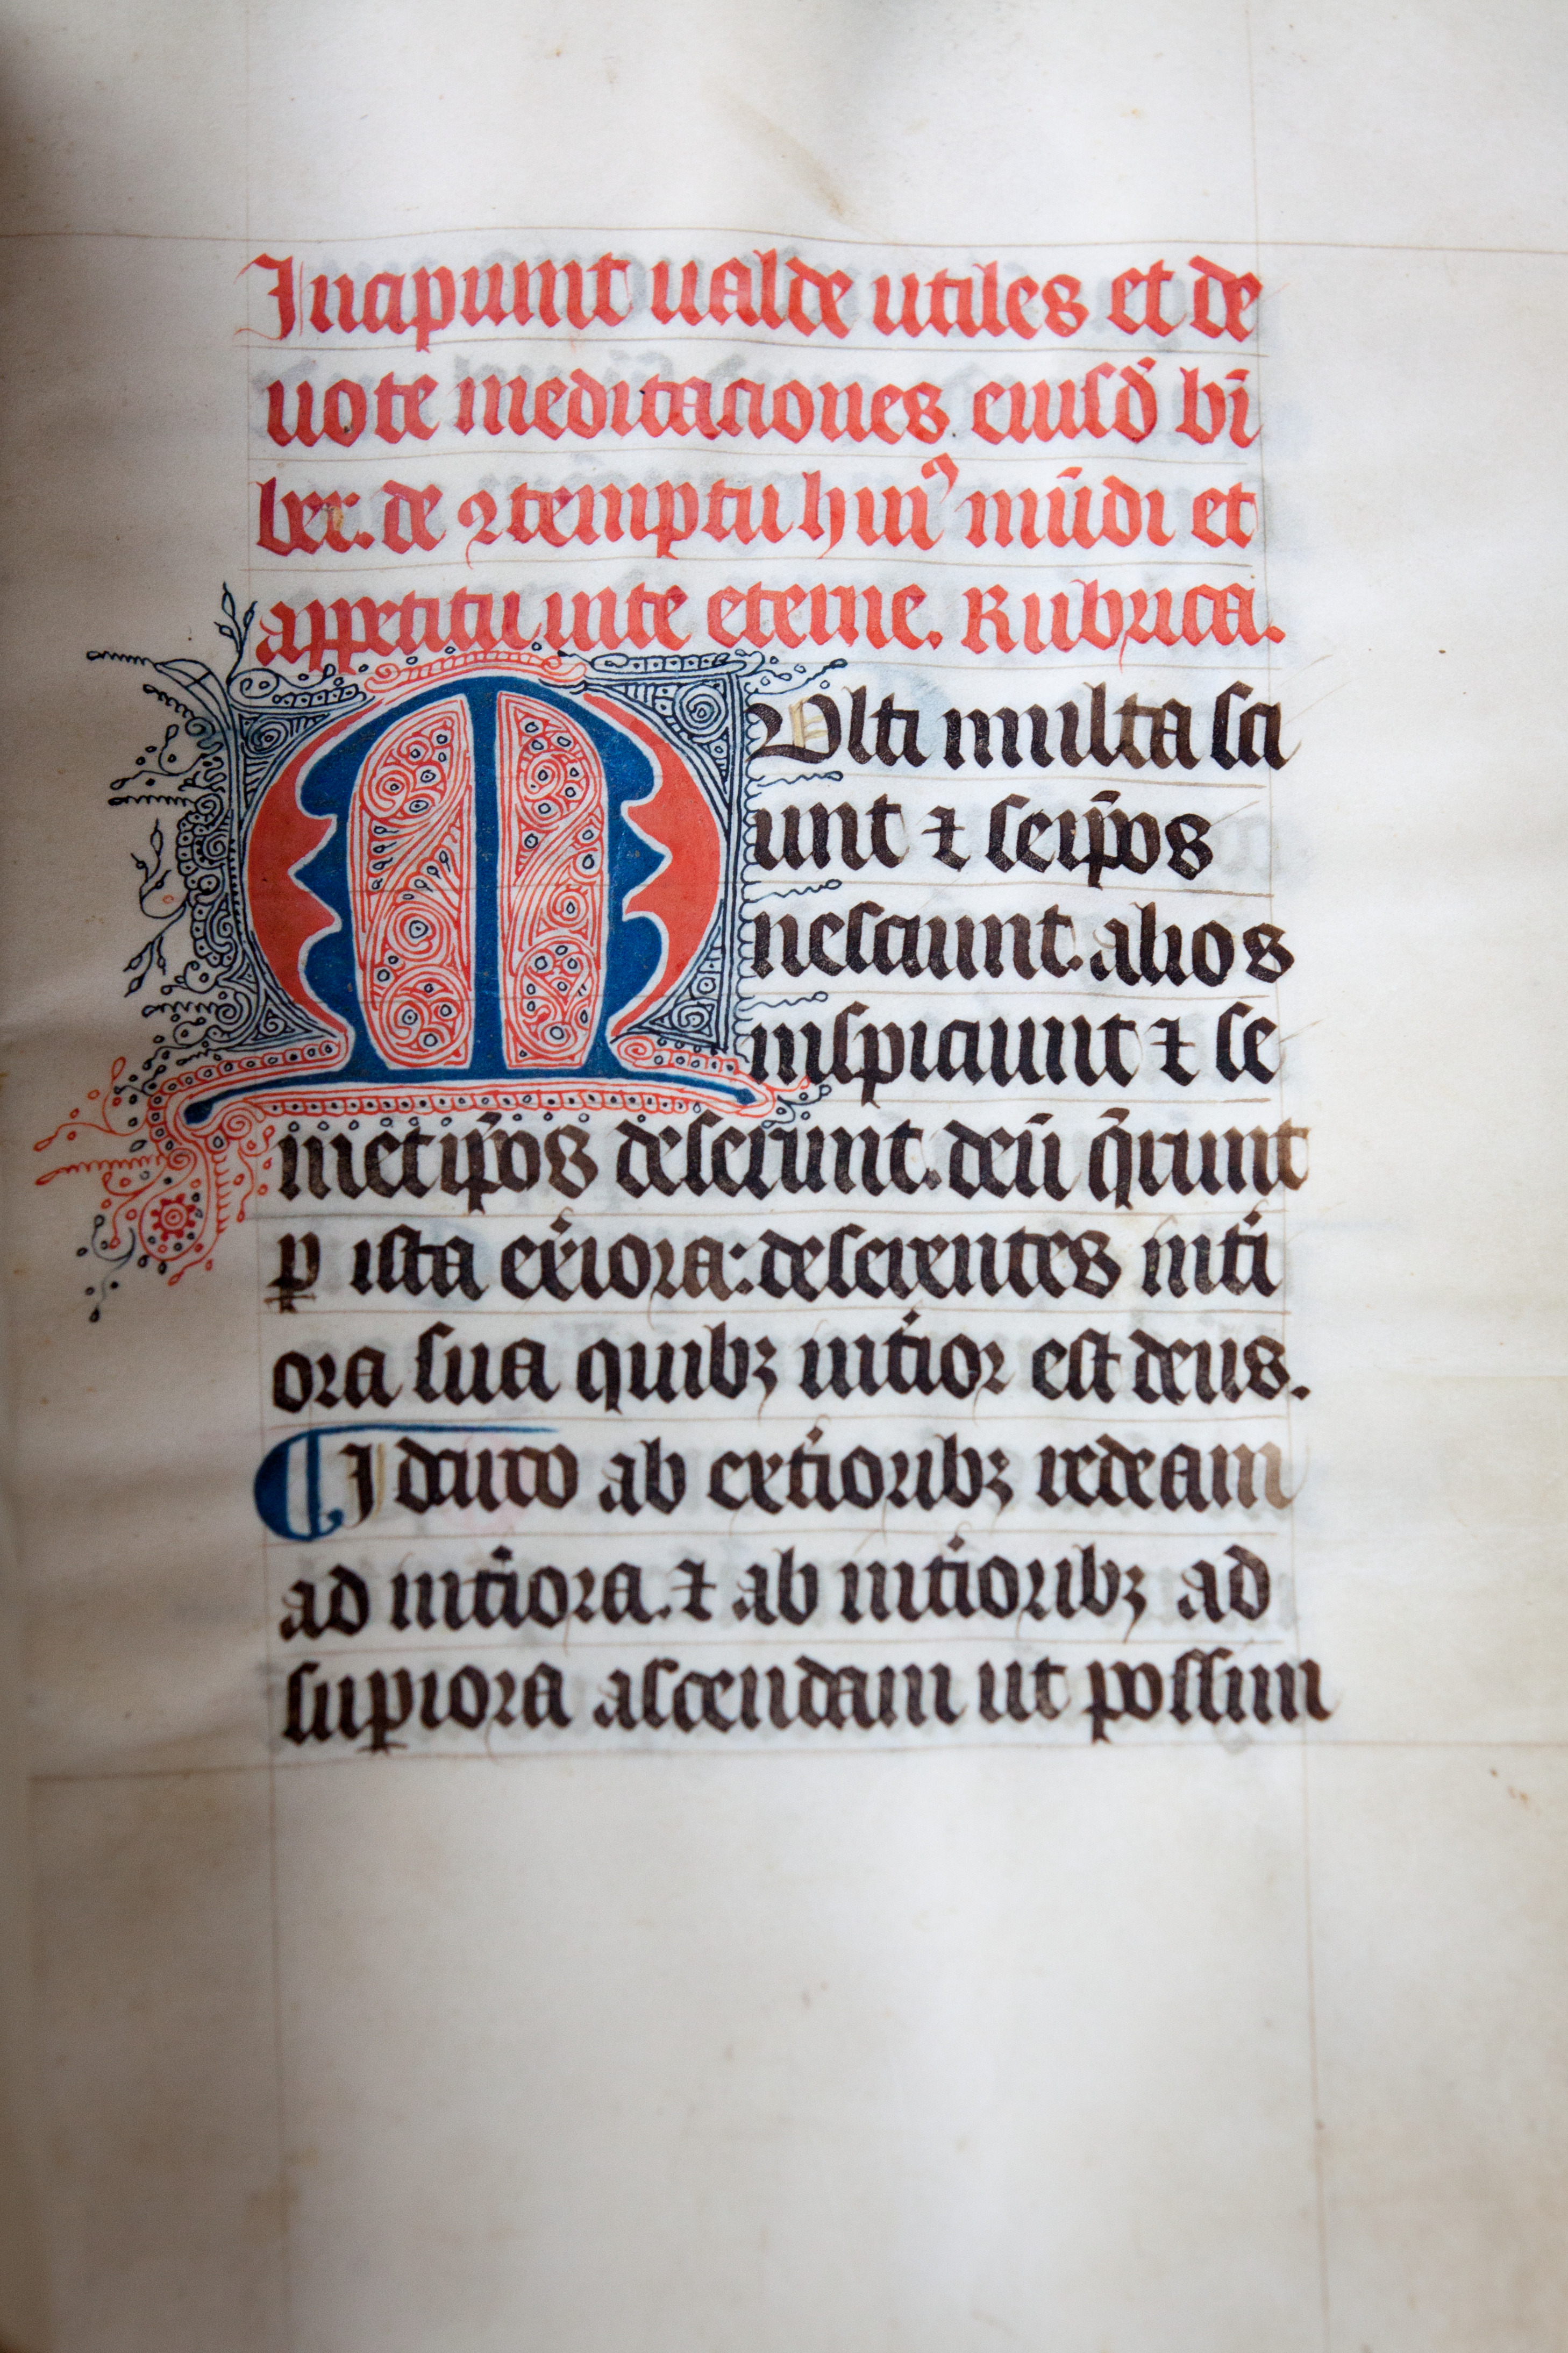 Incipiunt ualde utiles et de
uote meditaciones eiusd̄ bn̄
ber. de ꝯtemptu huiꝰ mūdi et
appetitu uite eterne. Rubrica.
MUlti multa sci
unt ⁊ seip̄os
nesciunt. alios
inspiciunt ⁊ se
metip̄os deserunt. deū q̄runt
ꝑ ista ext̾iora: deserentes int̾i
ora sua quibꝫ int̾ior est deus.
¶ Idcirco ab ext̾ioribꝫ redeam
ad int̾iora. ⁊ ab int̾ioribꝫ ad
supiora ascendam ut possim